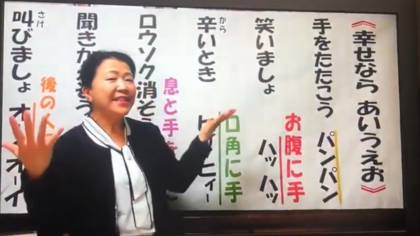 《幸せなら あいうえお》
手をたたこう パンパン
お腹に手
笑いましょ ハッハッ
口角に手
から
辛いとき
息と手
ロウソク消そ
聞き
後の
さけ
叫びましょ オーイ